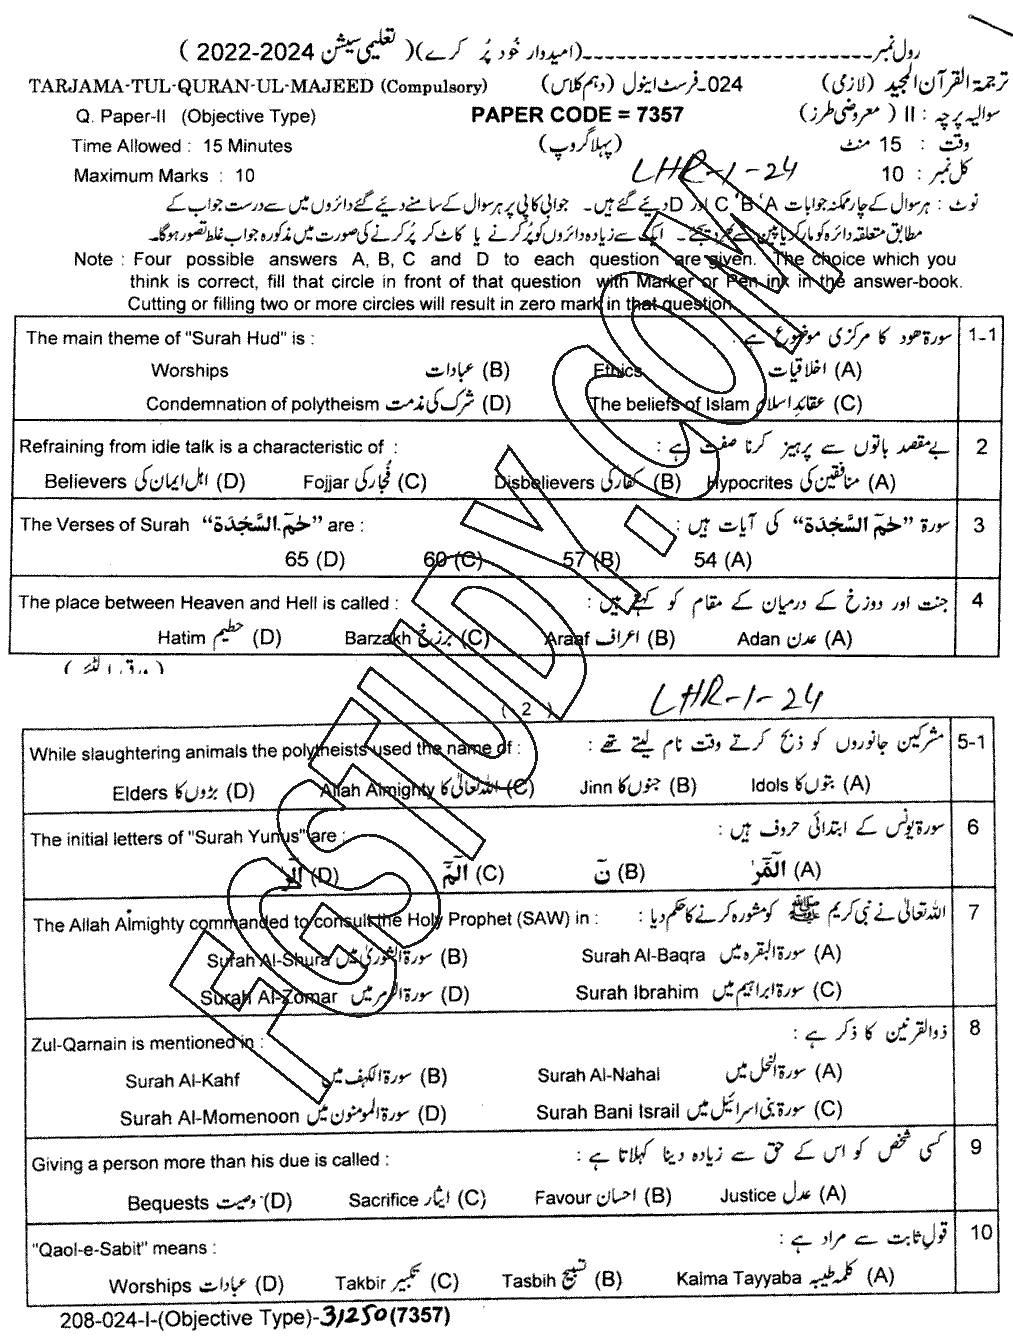 رول نمبر ـــــــــــــــــــــــــــ (امیدوار خُود پُر کرے) ( تعلیمی سیشن 2024-2022 )
ترجمۃ القرآن المجید (لازمی) 024۔فرسٹ اینول (دہم کلاس) TARJAMA-TUL-QURAN-UL-MAJEED (Compulsory)
سوالیہ پرچہ : II ( معروضی طرز) PAPER CODE = 7357 Q. Paper-II (Objective Type)
وقت : 15 منٹ (پہلا گروپ) Time Allowed : 15 Minutes
کل نمبر : 10 LHR-1-24 Maximum Marks : 10
نوٹ : ہر سوال کے چار ممکنہ جوابات A، B، C اور D دیئے گئے ہیں۔ جوابی کاپی پر ہر سوال کے سامنے دیئے گئے دائروں میں سے درست جواب کے
مطابق متعلقہ دائرہ کو مارکر یا پین سے بھر دیجئے۔ ایک سے زیادہ دائروں کو پُر کرنے یا کاٹ کر پُر کرنے کی صورت میں مذکورہ جواب غلط تصور ہوگا۔
Note : Four possible answers A, B, C and D to each question are given. The choice which you
think is correct, fill that circle in front of that question with Marker or Pen ink in the answer-book.
Cutting or filling two or more circles will result in zero mark in that question.
1-1 سورۃ ھود کا مرکزی موضوع ہے : The main theme of "Surah Hud" is :
(A) اخلاقیات Ethics (B) عبادات Worships
(C) عقائدِ اسلام The beliefs of Islam (D) شرک کی مذمت Condemnation of polytheism
2 بے مقصد باتوں سے پرہیز کرنا صفت ہے : Refraining from idle talk is a characteristic of :
(A) منافقین کی Hypocrites (B) کفار کی Disbelievers (C) فُجار کی Fojjar (D) اہل ایمان کی Believers
3 سورۃ “حٰمٓ السَّجْدَۃ” کی آیات ہیں : The Verses of Surah “حٰمٓ السَّجْدَۃ” are :
(A) 54 (B) 57 (C) 60 (D) 65
4 جنت اور دوزخ کے درمیان کے مقام کو کہتے ہیں : The place between Heaven and Hell is called :
(A) عدن Adan (B) اعراف Araaf (C) برزخ Barzakh (D) حطیم Hatim
(ورق الٹئے)
( 2 ) LHR-1-24
5-1 مشرکین جانوروں کو ذبح کرتے وقت نام لیتے تھے : While slaughtering animals the polytheists used the name of :
(A) بتوں کا Idols (B) جنوں کا Jinn (C) اللہ تعالیٰ کا Allah Almighty (D) بڑوں کا Elders
6 سورۃ یونس کے ابتدائی حروف ہیں : The initial letters of "Surah Yunus" are :
(A) الٓمّٓرٰ (B) نٓ (C) الٓمّٓ (D) الٓرٰ
7 اللہ تعالیٰ نے نبی کریم ﷺ کو مشورہ کرنے کا حکم دیا : The Allah Almighty commanded to consult the Holy Prophet (SAW) in :
(A) سورۃ البقرہ میں Surah Al-Baqra (B) سورۃ الشوریٰ میں Surah Al-Shura
(C) سورۃ ابراہیم میں Surah Ibrahim (D) سورۃ الزمر میں Surah Al-Zomar
8 ذوالقرنین کا ذکر ہے : Zul-Qarnain is mentioned in :
(A) سورۃ النحل میں Surah Al-Nahal (B) سورۃ الکہف میں Surah Al-Kahf
(C) سورۃ بنی اسرائیل میں Surah Bani Israil (D) سورۃ المومنون میں Surah Al-Momenoon
9 کسی شخص کو اس کے حق سے زیادہ دینا کہلاتا ہے : Giving a person more than his due is called :
(A) عدل Justice (B) احسان Favour (C) ایثار Sacrifice (D) وصیت Bequests
10 قولِ ثابت سے مراد ہے : "Qaol-e-Sabit" means :
(A) کلمہ طیبہ Kalma Tayyaba (B) تسبیح Tasbih (C) تکبیر Takbir (D) عبادات Worships
208-024-I-(Objective Type)-31250 (7357)
FGSTUDY.COM